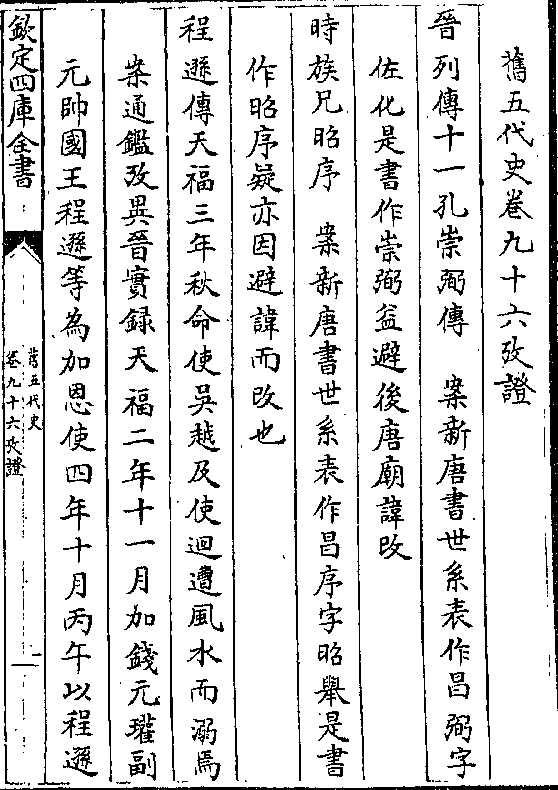 舊五代史卷九十六攷證
晉列傳十一孔崇弼傳　案新唐書世系表作昌弼字
佐化是書作崇弼益避後唐廟諱改
時族兄昭序　案新唐書世系表作昌序字昭舉是書
作昭序疑亦因避諱而改也
程遜傳天福三年秋命使吳越及使迴遭風水而溺焉
案通鑑攷異晉實録天福二年十一月加錢元瓘副
元帥國王程遜等為加恩使四年十月丙午以程遜
欽定四庫全書
舊五代史
卷九十六攷證
一